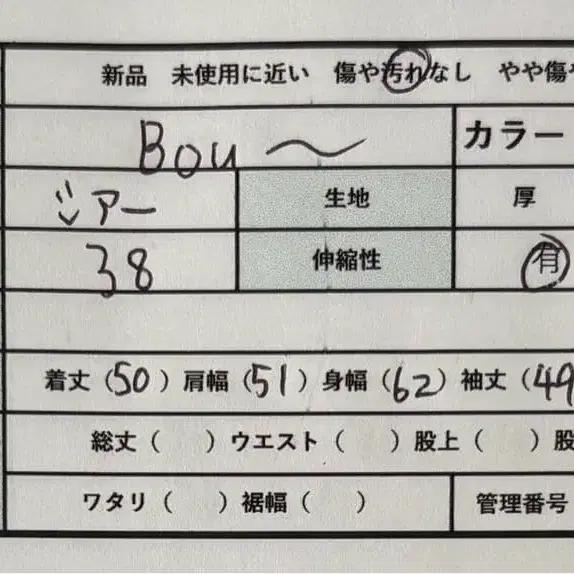 新品 未使用に近い 傷や汚れなし やや傷や
Bou〜 カラー
シアー 生地 厚
38 伸縮性 有
着丈（50）肩幅（51）身幅（62）袖丈（49
総丈（ ）ウエスト（ ）股上（ ）股
ワタリ（ ）裾幅（ ） 管理番号